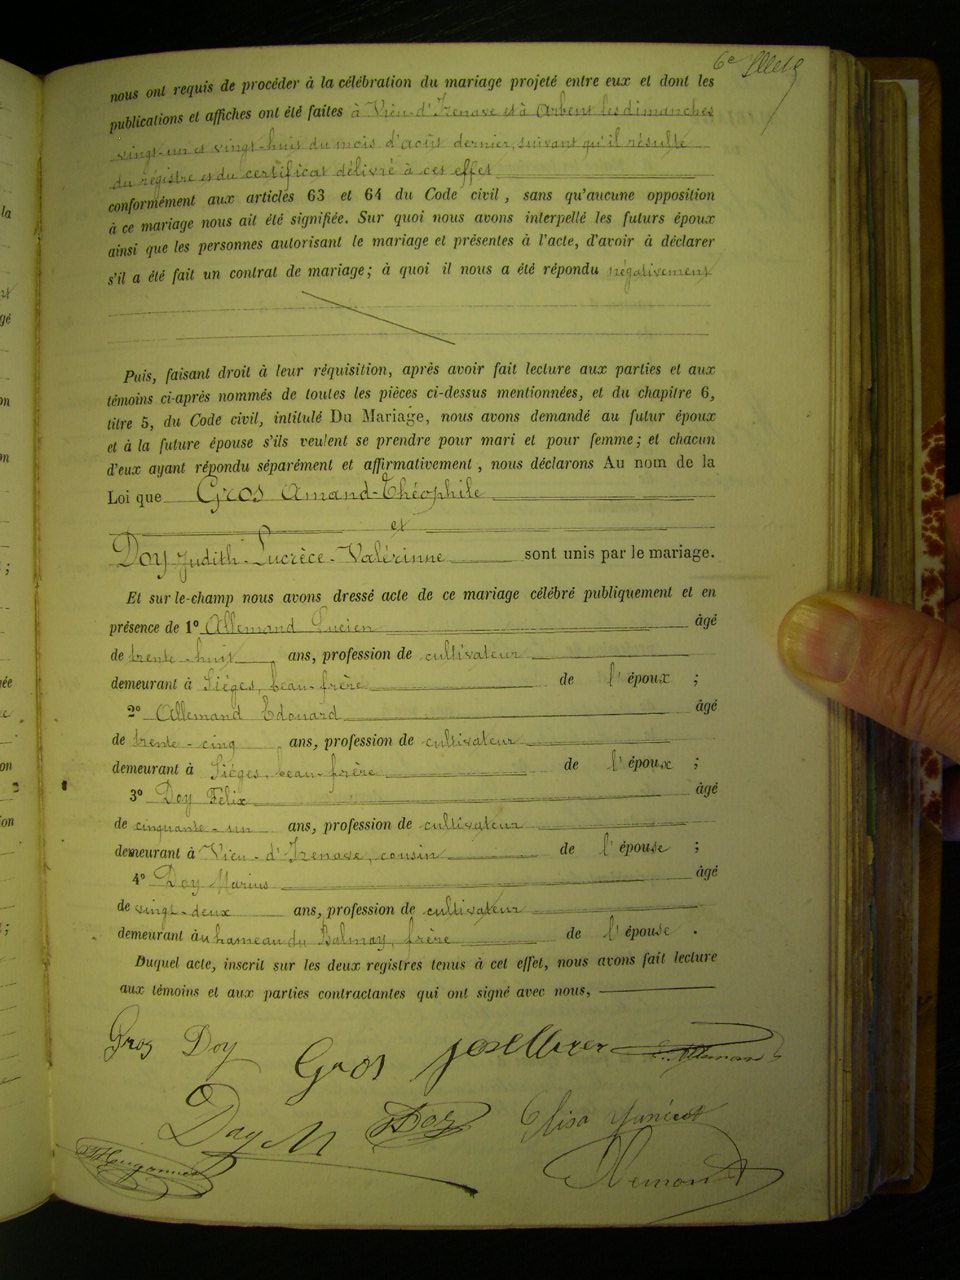 6e
nous ont requis de procéder à la célébration du mariage projeté entre eux et dont les
publications et affiches ont été faites à Vieu-d'Izenave et à Arbent les dimanches
vingt-un et vingt-huit du mois d'août dernier, suivant qu'il résulte
du régistre et du certificat délivré à cet effet
conformément aux articles 63 et 64 du Code civil, sans qu'aucune opposition
à ce mariage nous ait été signifiée. Sur quoi nous avons interpellé les futurs époux
ainsi que les personnes autorisant le mariage et présentes à l'acte, d'avoir à déclarer
s'il a été fait un contrat de mariage; à quoi il nous a été répondu négativement
Puis, faisant droit à leur réquisition, après avoir fait lecture aux parties et aux
témoins ci-après nommés de toutes les pièces ci-dessus mentionnées, et du chapitre 6,
titre 5, du Code civil, intitulé Du Mariage, nous avons demandé au futur époux
et à la future épouse s'ils veulent se prendre pour mari et pour femme; et chacun
d'eux ayant répondu séparément et affirmativement, nous déclarons Au nom de la
Loi que Gros Amand-Théophile
et
Doy Judith-Lucrèce-Valérinne sont unis par le mariage.
Et sur-le-champ nous avons dressé acte de ce mariage célébré publiquement et en
présence de 1° Allemand Lucien âgé
de trente-huit ans, profession de cultivateur
demeurant à Siéges, beau-frère de l'époux ;
2° Allemand Edouard âgé
de trente-cinq ans, profession de cultivateur
demeurant à Siéges, beau-frère de l'époux ;
3° Doy Félix âgé
de cinquante-un ans, profession de cultivateur
demeurant à Vieu-d'Izenave, cousin de l'épouse ;
4° Doy Marius âgé
de vingt-deux ans, profession de cultivateur
demeurant àu hameau du Balmay, frère de l'épouse .
Duquel acte, inscrit sur les deux registres tenus à cet effet, nous avons fait lecture
aux témoins et aux parties contractantes qui ont signé avec nous,
Gros Doy Gros E. Allemand
Doy M Doy Elisa